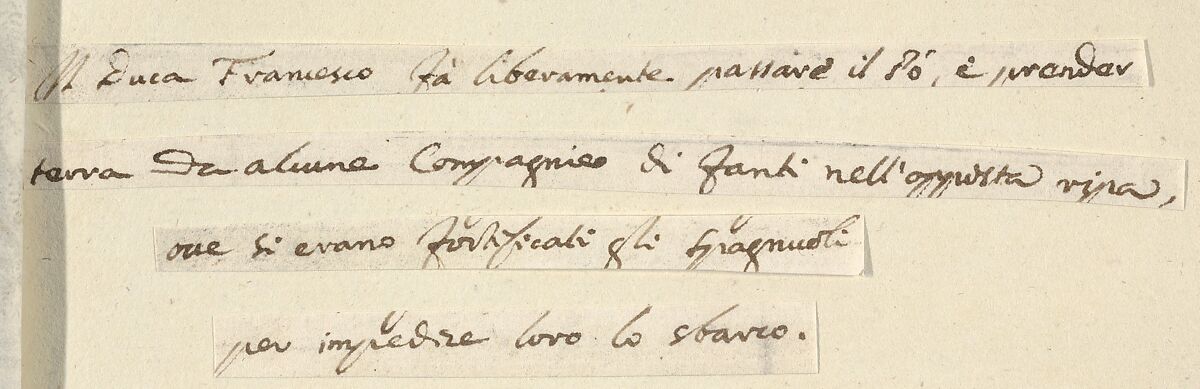 Il Duca Francesco fà liberamente passare il Pò, e prender
terra da alcune Compagnie di fanti nell'opposta ripa,
oue si erano fortificati gli spagnuoli
per impedire loro lo sbarco.